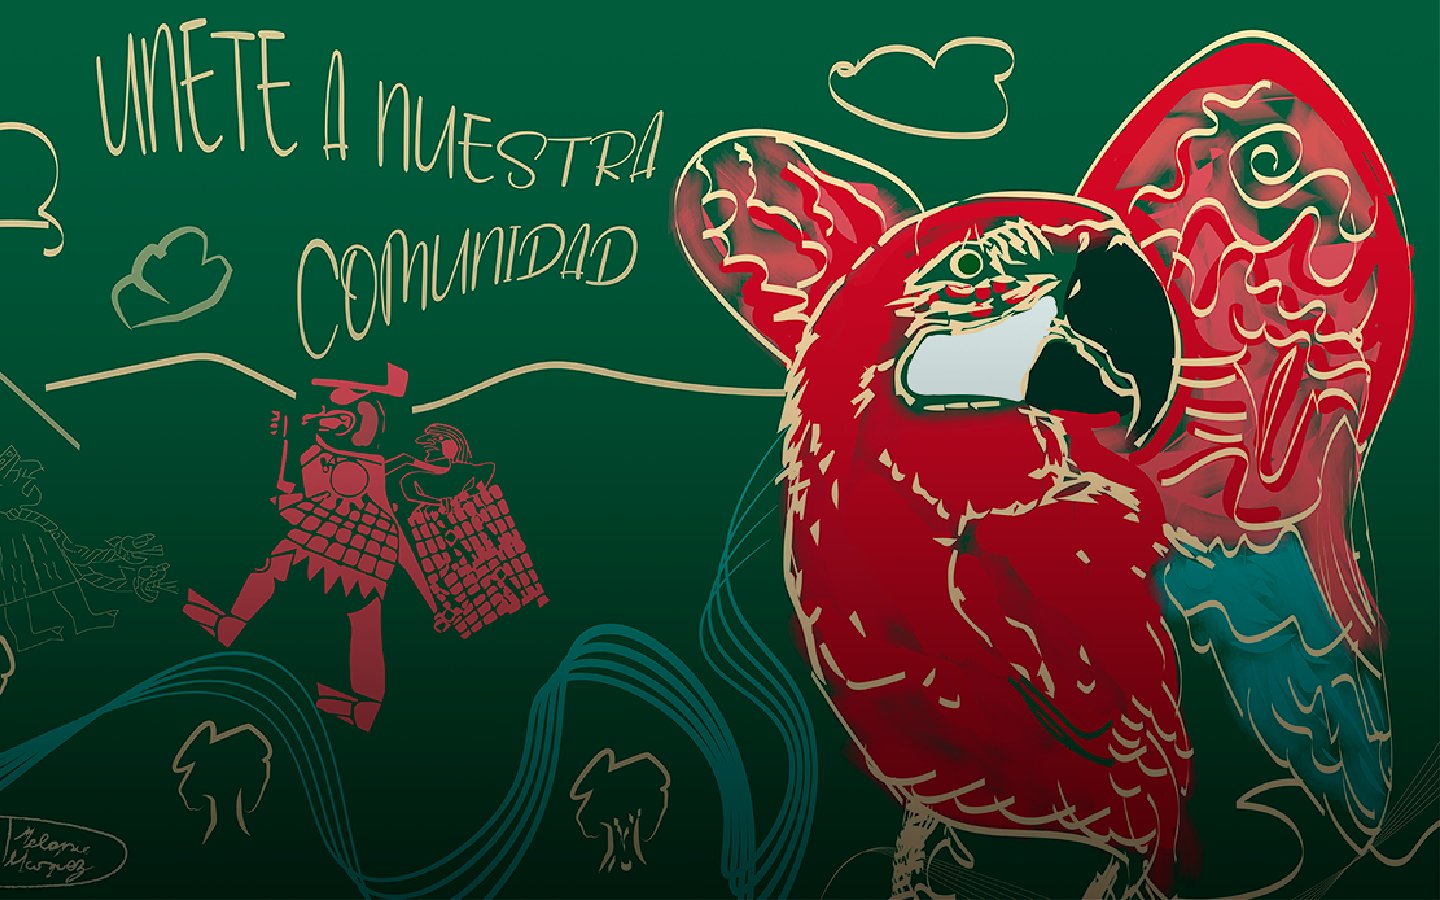 UNETE A NUESTRA
COMUNIDAD
Melanie